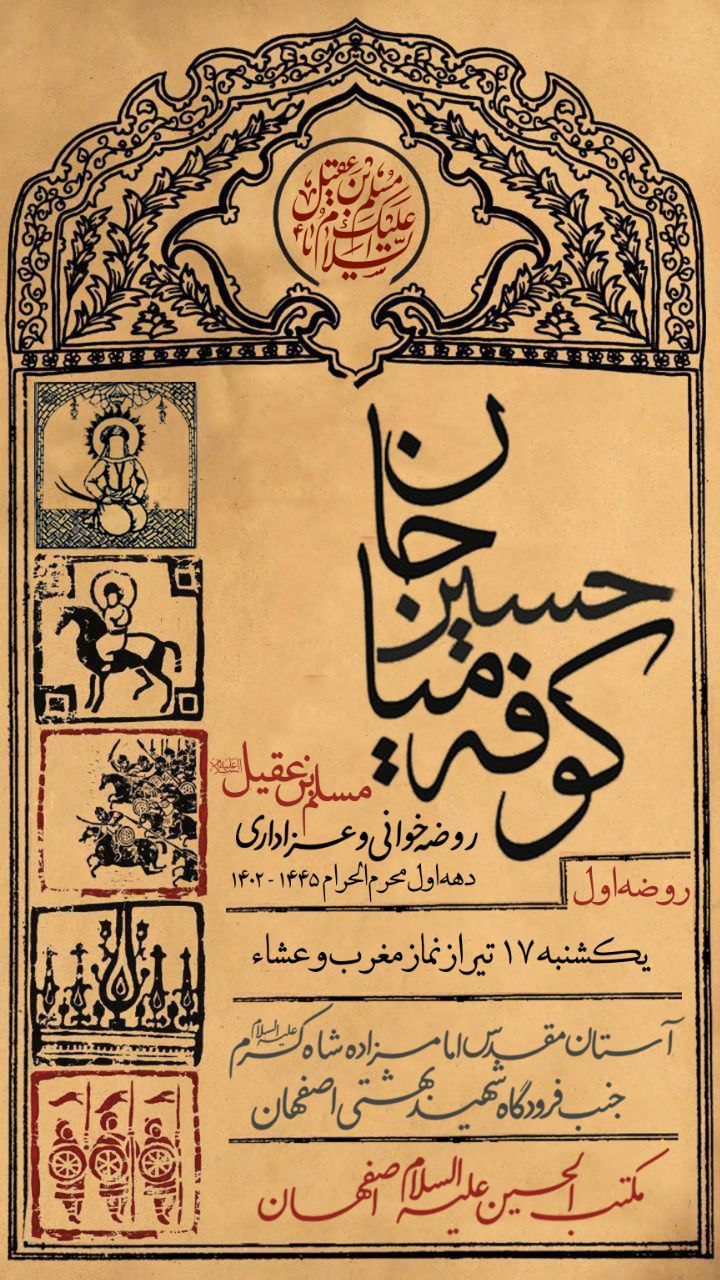 السلام علیک یا مسلم بن عقیل
کوفه میا حسین جان
مسلم بن عقیل علیه السلام
روضه خوانی و عزاداری
دهه اول محرم الحرام ۱۴۴۵ - ۱۴۰۲
روضه اول
یکشنبه ۱۷ تیر از نماز مغرب و عشاء
آستان مقدس امامزاده شاه کرم علیه السلام
جنب فرودگاه شهید بهشتی اصفهان
مکتب الحسین علیه السلام اصفهان